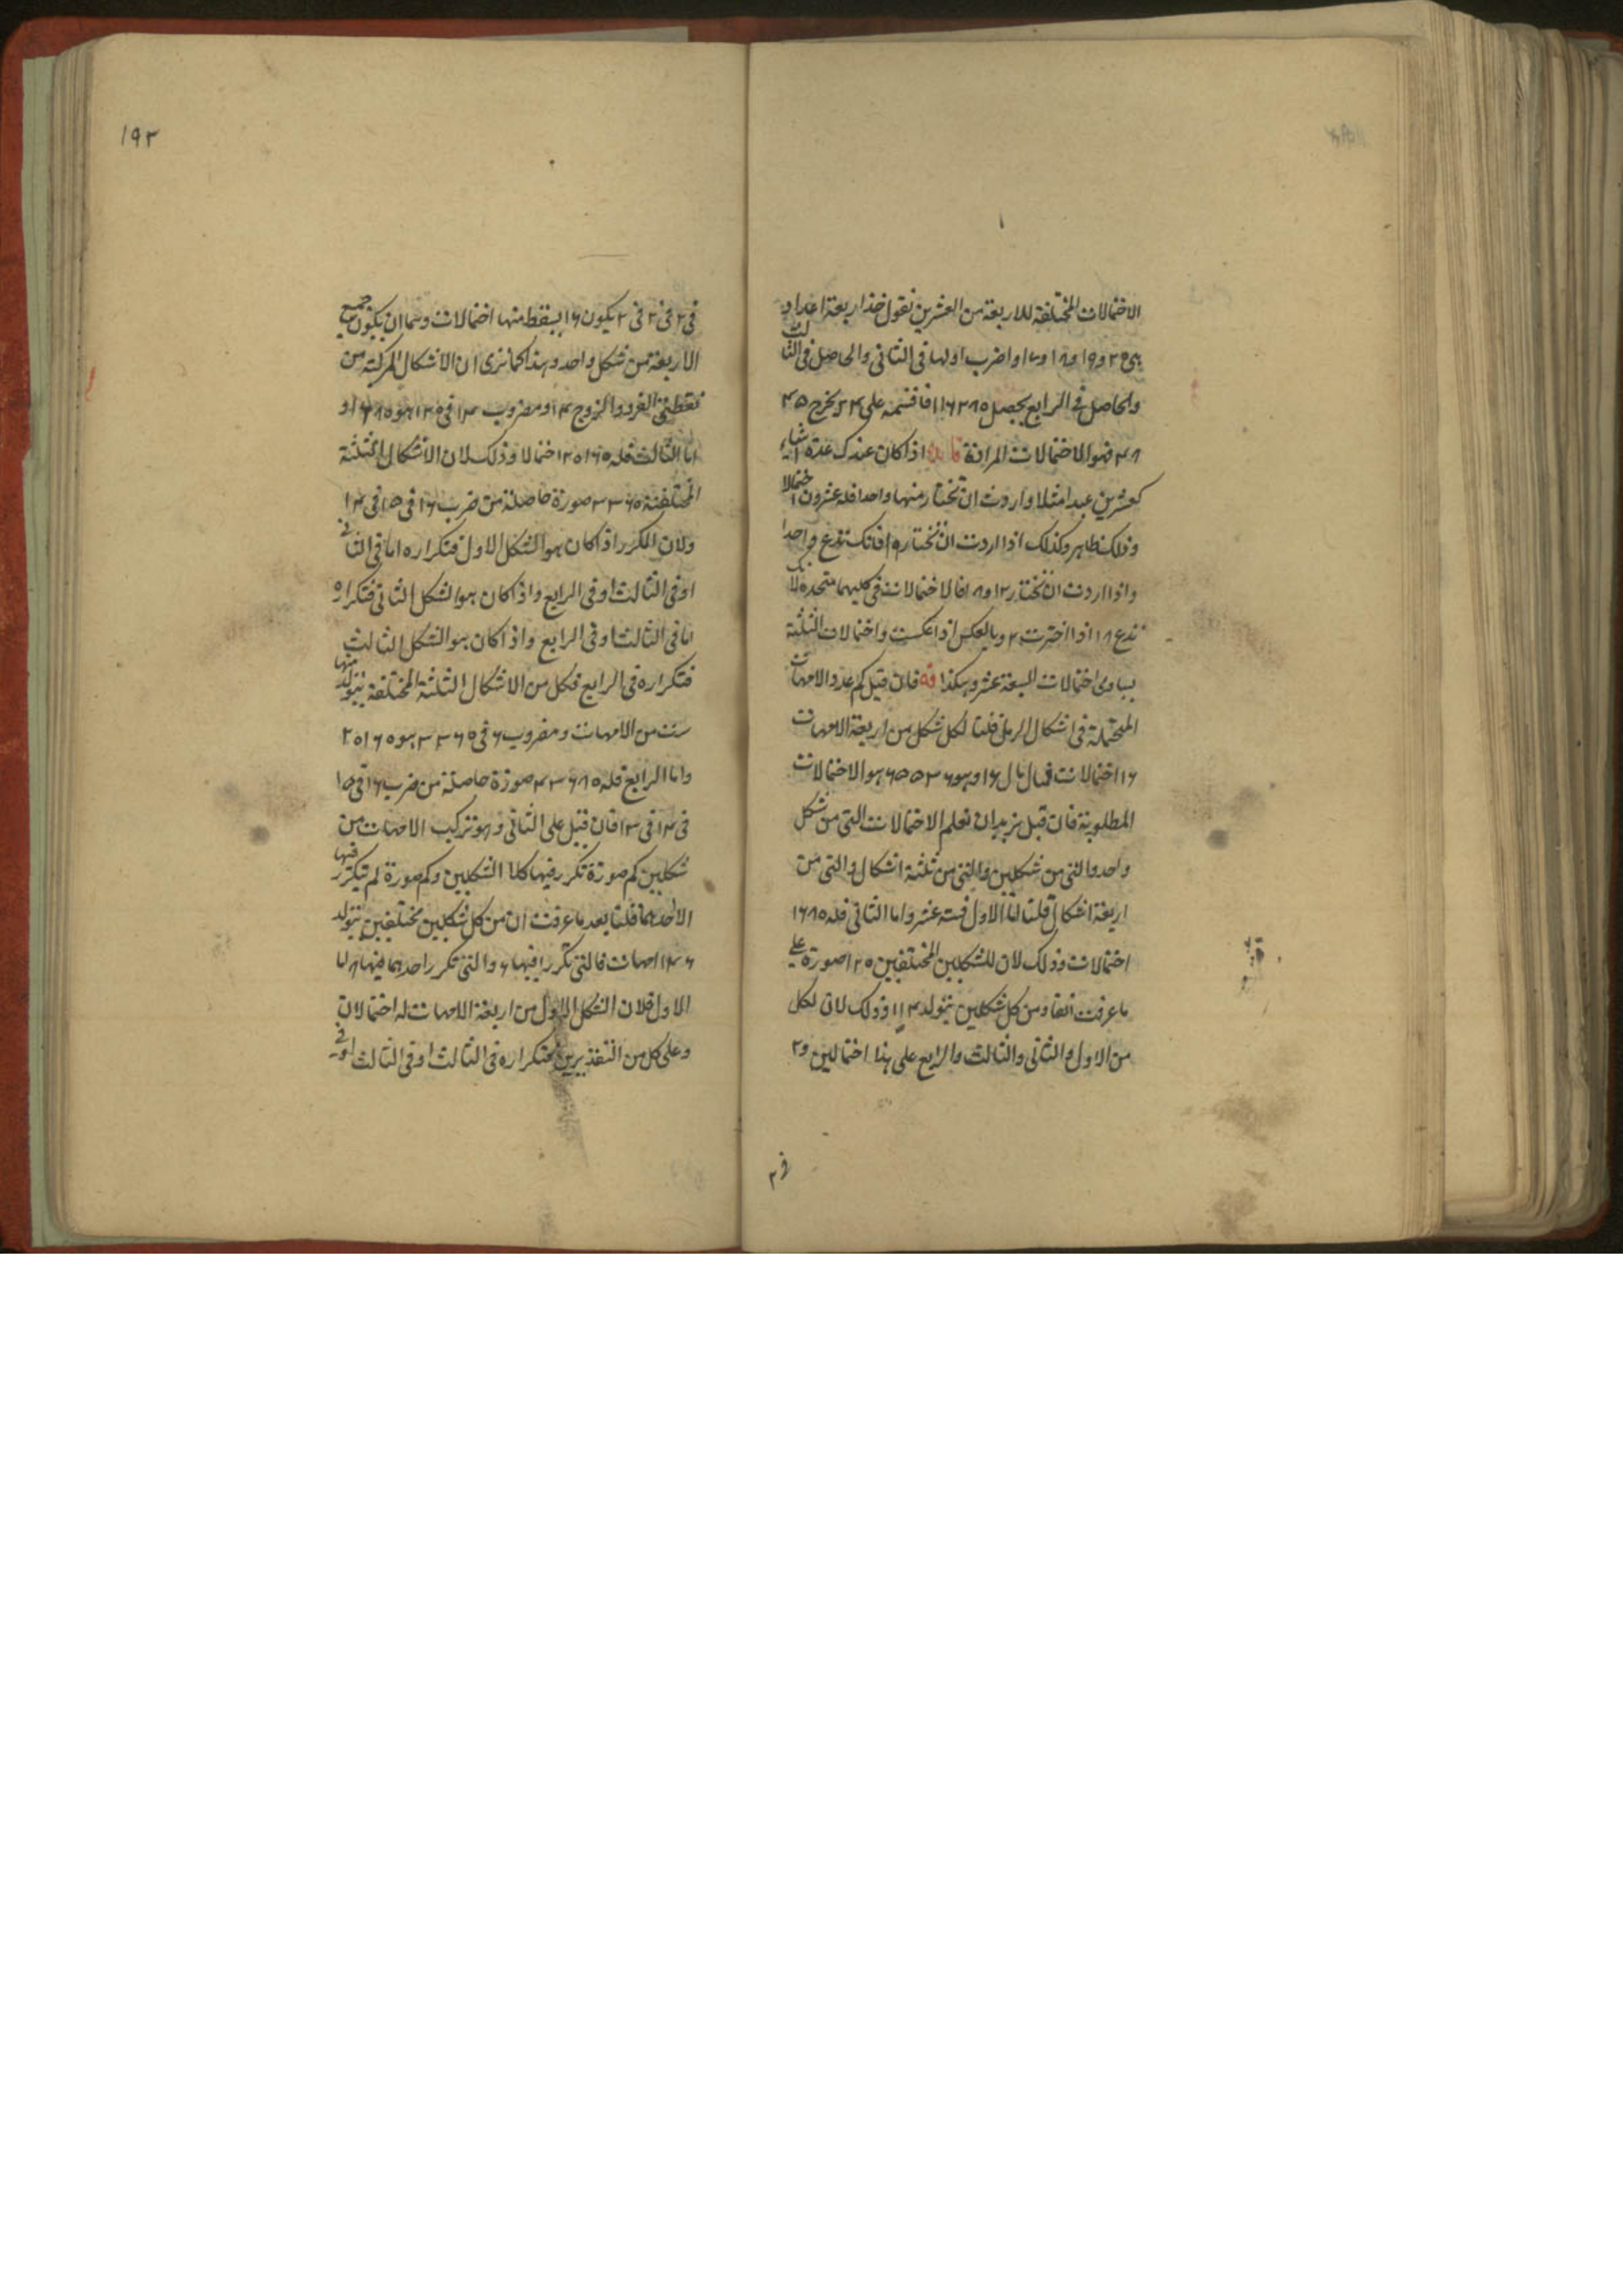 الاحتمالات المختلفة للاربعة من العشرين نقول خذ اربعة اعداد
هی ۲۰ و ۱۹ و ۱۸ و ۱۷ و اضرب اولها فی الثانی والحاصل فی الثالث
والحاصل فی الرابع یحصل ۱۱۶۲۸۰ فاقسمه علی ۲۴ یخرج ۴۵
۴۸ فهو الاحتمالات المرادة فایدة اذا کان عندک عدة اشیاء
کعشرین عبدا مثلا واردت ان تختار منها واحدا فله عشرون احتمالا
وذلک ظاهر وکذلک اذا اردت ان تختار ۱۹ فانک تدع واحدا
واذا اردت ان تختار ۲ او ۱۸ فالاحتمالات فی کلیهما متحدة لانک
تدع ۱۸ اذا اخترت ۲ وبالعکس اذا عکست واحتمالات الثلثة
یساوی احتمالات السبعة عشر وهکذا فان قیل کم عدد الامهات
المحتملة فی اشکال الرمل قلنا لکل شکل من اربعة الامهات
۱۶ احتمالات فمال مال ۱۶ وهو ۶۵۵۳۶ هو الاحتمالات
المطلوبة فان قیل نرید ان نعلم الاحتمالات التی من شکل
واحد والتی من شکلین والتی من ثلثة اشکال والتی من
اربعة اشکال قلنا اما الاول فستة عشر واما الثانی فله ۱۶۸۰
احتمالات وذلک لان للشکلین المختلفین ۱۲۰ صورة علی
ما عرفت آنفا ومن کل شکلین یتولد ۱۴ وذلک لان لکل
من الاول والثانی والثالث والرابع علی هذا احتمالین و ۲
فی ۲
۱۹۲
فی ۲ فی ۲ فی ۲ یکون ۱۶ یسقط منها احتمالات وهما ان یکون جمیع
الاربعة من شکل واحد وهذا کما تری ان الاشکال المرکبة من
نقطتی الفرد والزوج ۱۴ ومضروب ۱۴ فی ۱۲۰ هو ۱۶۸۰ و
اما الثالث فله ۲۰۱۶۰ احتمالا وذلک لان الاشکال الثلثة
المختلفة ۳۳۶۰ صورة حاصلة من ضرب ۱۶ فی ۱۵ فی ۱۴
ولان المکرر اذا کان هو الشکل الاول فتکراره اما فی الثانی
او فی الثالث او فی الرابع واذا کان هو الشکل الثانی فتکراره
اما فی الثالث او فی الرابع واذا کان هو الشکل الثالث
فتکراره فی الرابع فکل من الاشکال الثلثة المختلفة یتولد منها
ست من الامهات ومضروب ۶ فی ۳۳۶۰ هو ۲۰۱۶۰
واما الرابع فله ۴۳۶۸۰ صورة حاصلة من ضرب ۱۶ فی ۱۵
فی ۱۴ فی ۱۳ فان قیل علی الثانی وهو ترکیب الامهات من
شکلین کم صورة تکرر فیها کلا الشکلین وکم صورة لم یتکرر فیها
الا احدهما قلنا بعد ما عرفت ان من کل شکلین مختلفین یتولد
۱۴ امهات فالتی تکررا فیها ۶ والتی تکرر احدهما فیها ۸ اما
الاول فلان الشکل الاول من اربعة الامهات له احتمالان
وعلی کل من التقدیرین فتکراره فی الثالث او فی الثالث او فی